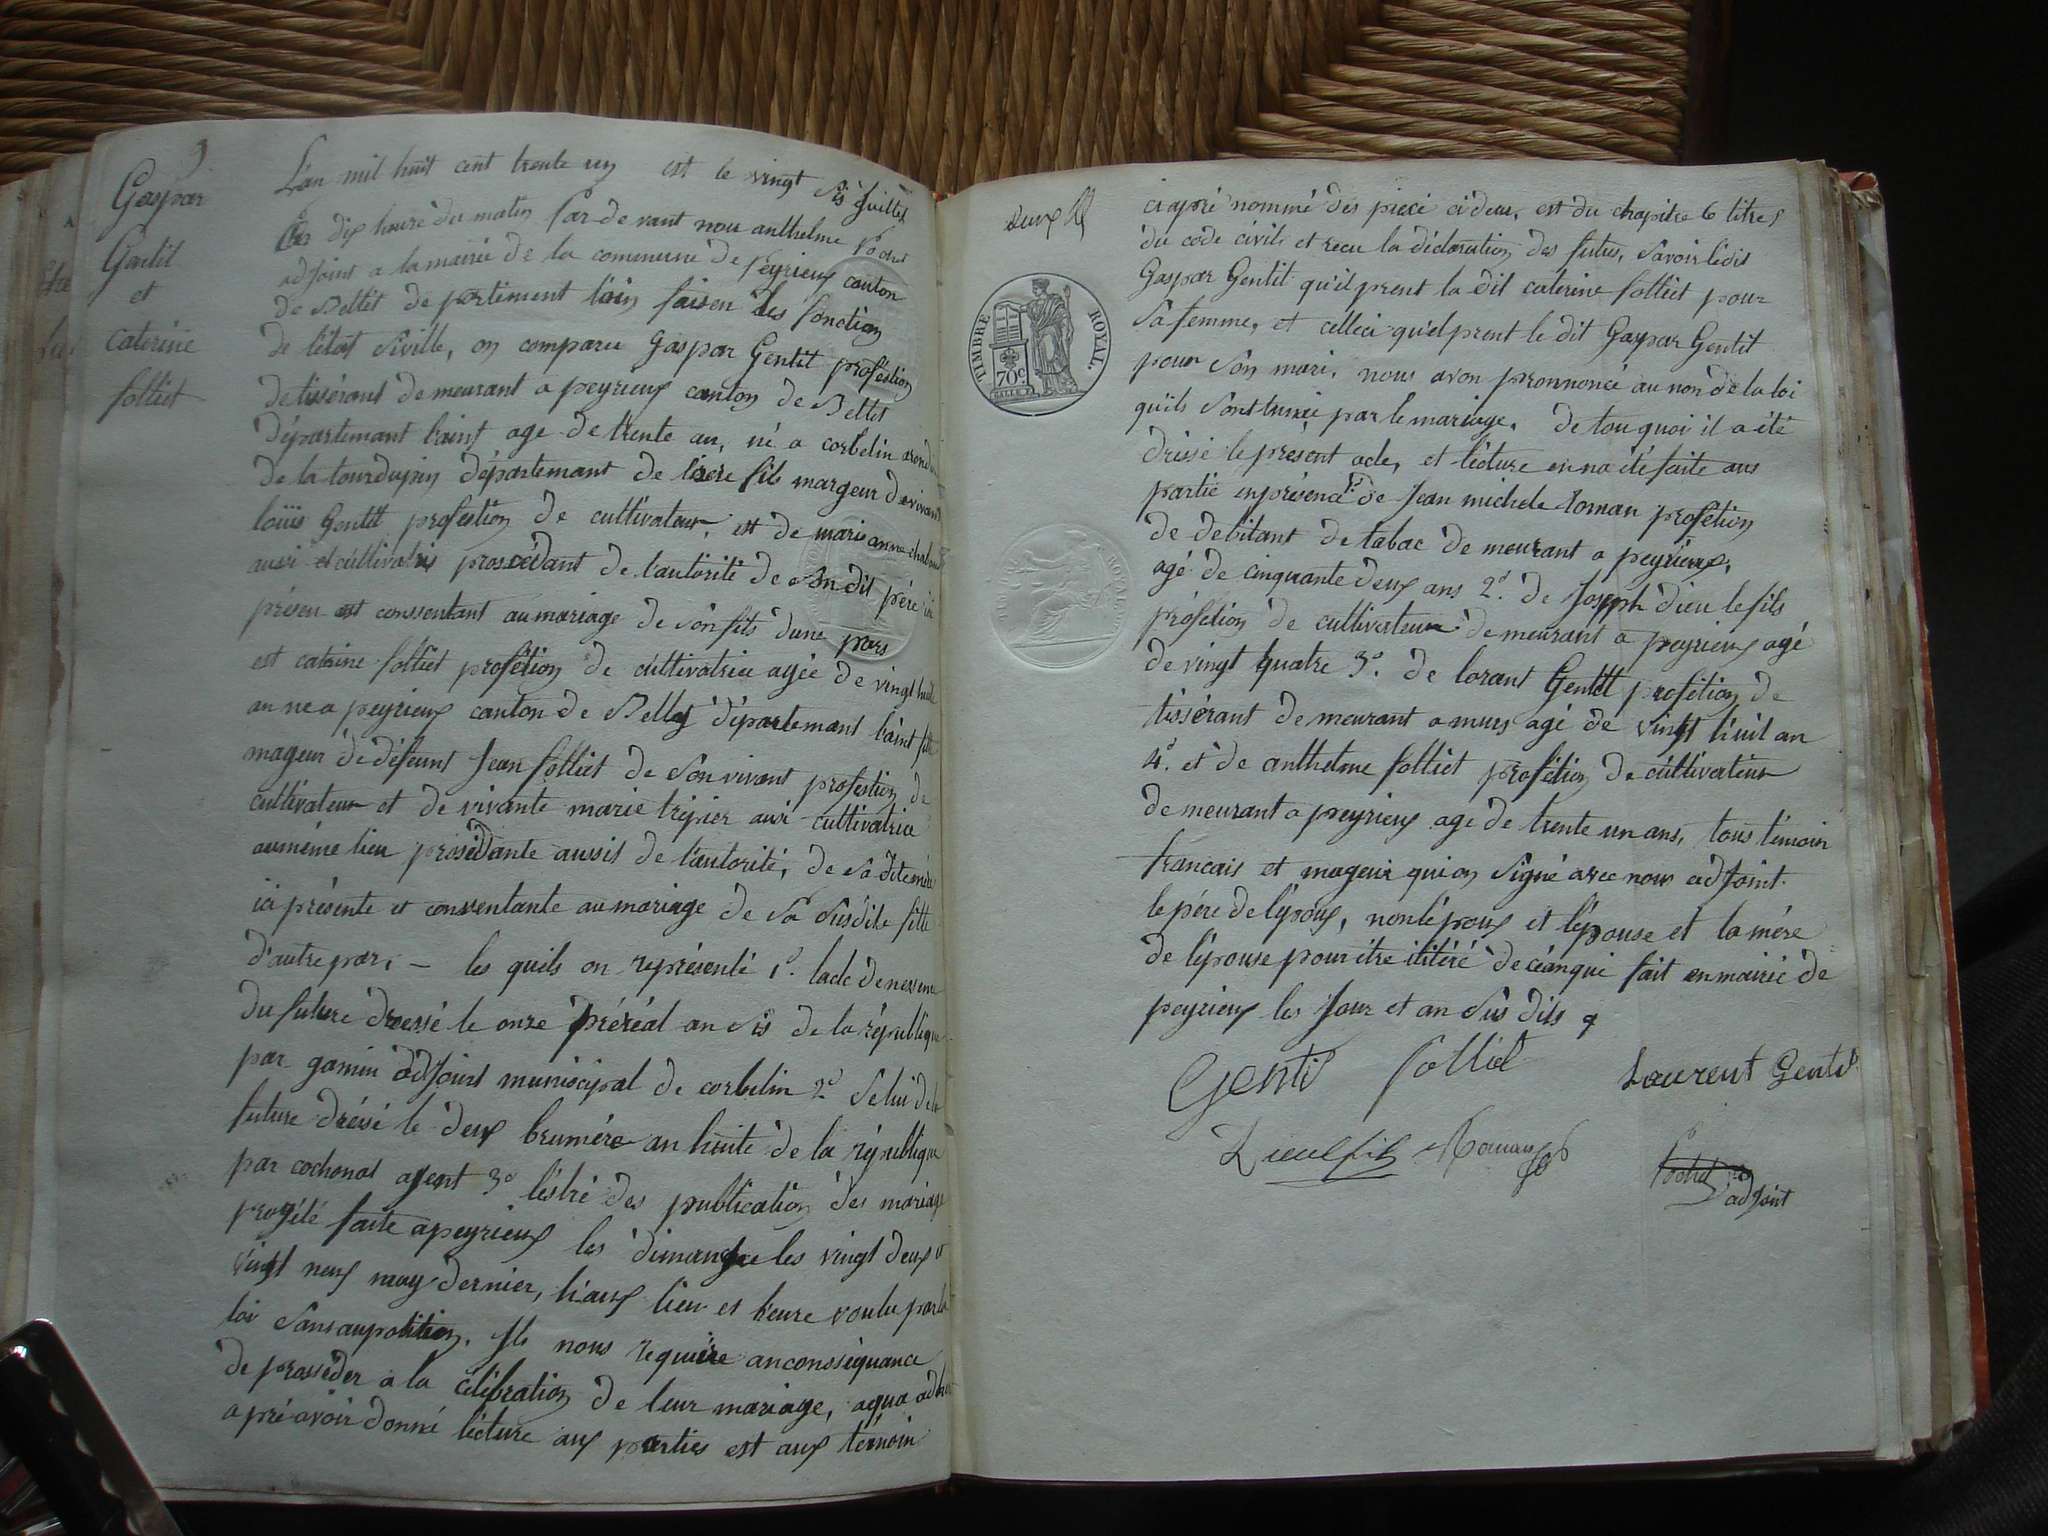 9
Gaspar
Gentil
et
caterine
folliet
L'an mil huit cent trente un est le vingt sis juillet
dix heure du matin par de vant nous anthelme Pochet
adjoint a la mairie de la commeune de peyrieux canton
de Bellit de partiment l'ain faisen les fonction
de l'état siville, on comparu Gaspar Gentil profestion
de tissérant de meurant a peyrieux canton de Bellit
département l'aint age de trente an, né a corbelin arond
de la tourdupin département de lisere fils margeur de vivant
louis Gentil profestion de cultivateur, est de marie anne
ausi et cultivatris prossédant de l'autorité de son dit père ici
présen est conssentant au mariage de son fils d'une pars
est catrine folliet profétion de cultivatrice agée de vingt huit
an ne a peyrieux canton de Belley département l'aint fille
mageur de défeunt Jean folliet de son vivant profestion de
cultivateur et de vivante marie trépier ausi cultivatrice
au même lieu prosédante aussis de l'autorité, de sa dite mère
ici présente et conssentante au mariage de sa susdite fille
d'autre par, — les quels on représenté 1º. lacte de nessence
du future dressé le onze préréal an sis de la république
par gamin adjoint municipal de corbelin 2º selui de la
future dréssé le deux brumére an huite de la république
par cochonat agent 3º l'éstré des publication des mariage
projété faite a peyrieux les dimanche les vingt deux et
vingt neuf may dernier, l'iaux lieu et heure voulu par la
loi sans aupotition. Ils nous requiére anconsséquance
de prosséder a la célébration de leur mariage, aqua
apré avoir donné lécture aux parties est aux témoin
ci apré nommé des piéce ci deu, est du chapitre 6 titre 5
du code civil et recu la déclaration des futur, savoir ledit
Gaspar Gentil qu'il prent la dit caterine folliet pour
sa femme, et celleci qu'el prent le dit Gaspar Gentil
pour son mari, nous avon pronnoncé au non de la loi
qu'ils sont hunié par le mariage. de tou quoi il a été
dréssé le présent acte, et lécture en na été faite aus
partie en présence 1º. de Jean michele Roman profétion
de debitant de tabac de meurant a peyrieux,
agé de cinquante deux ans 2º. de Joseph dieu le fils
profétion de cultivateur de meurant a peyrieux agé
de vingt quatre 3º. de lorant Gentil profétion de
tissérant de meurant a murs agé de vingt huit an
4º. et de anthelme folliet profétion de cultivateur
de meurant a peyrieux age de trente un ans, tous témoin
francais et mageur qui on signé avec nous adjoint.
le pére de lépoux, non lépoux et lépouse et la mére
de lépouse pour étre ilitéré de céan qui fait en mairie de
peyrieux les jour et an sus dits
TIMBRE ROYAL
70c
Gentil folliet Laurent Gentil
Dieu le fils Roman
Pochet
adjoint